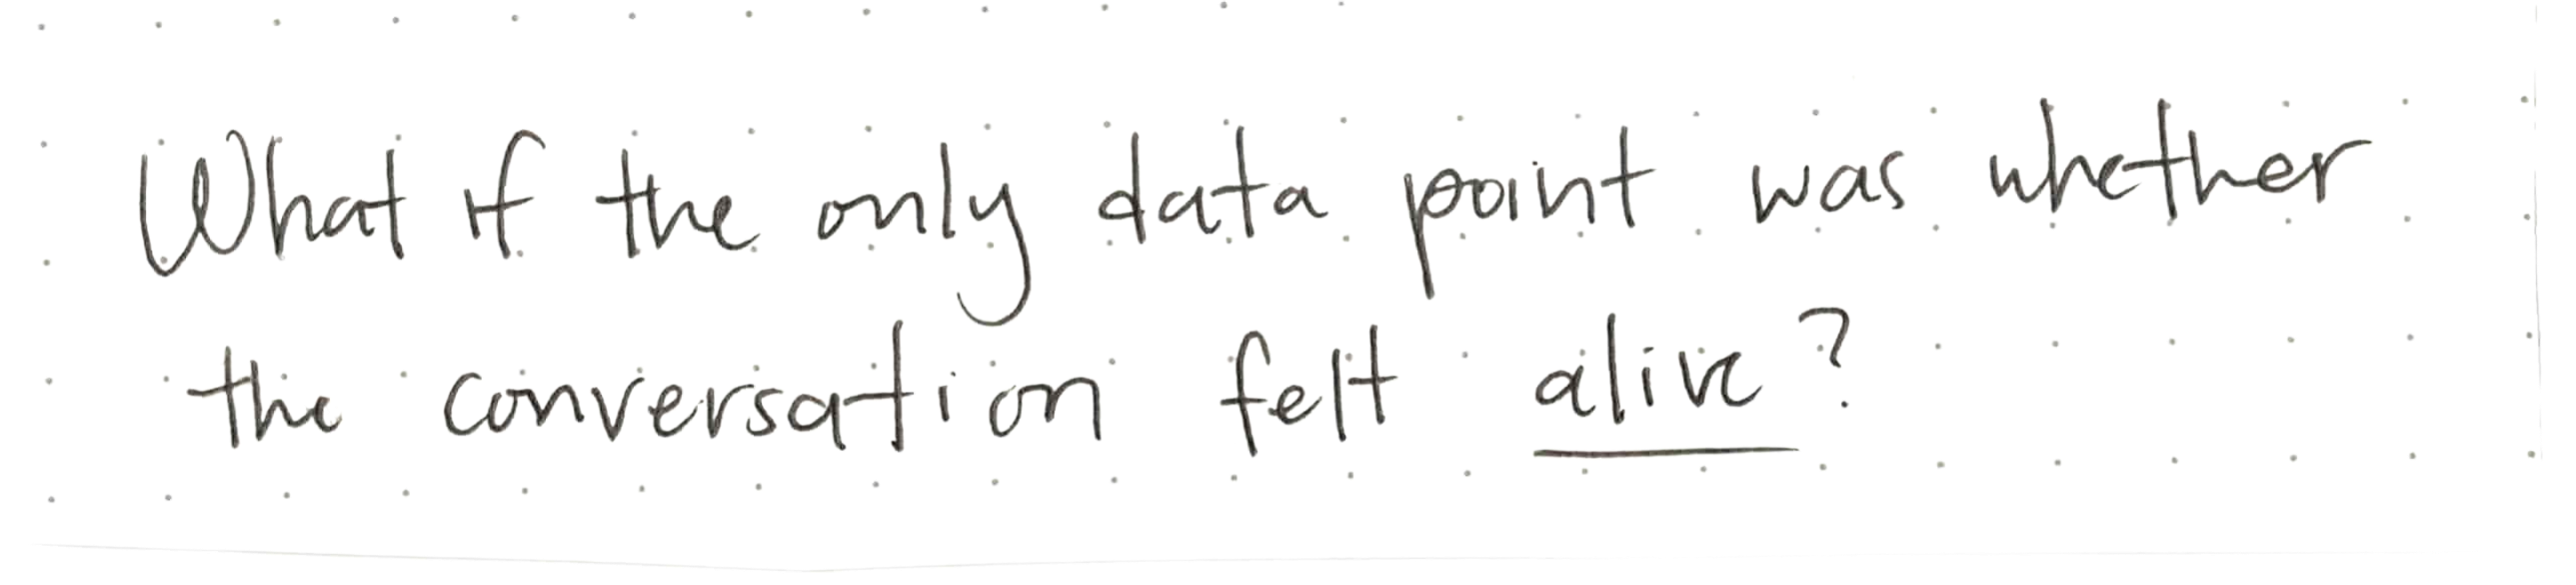 What if the only data point was whether
the conversation felt alive?